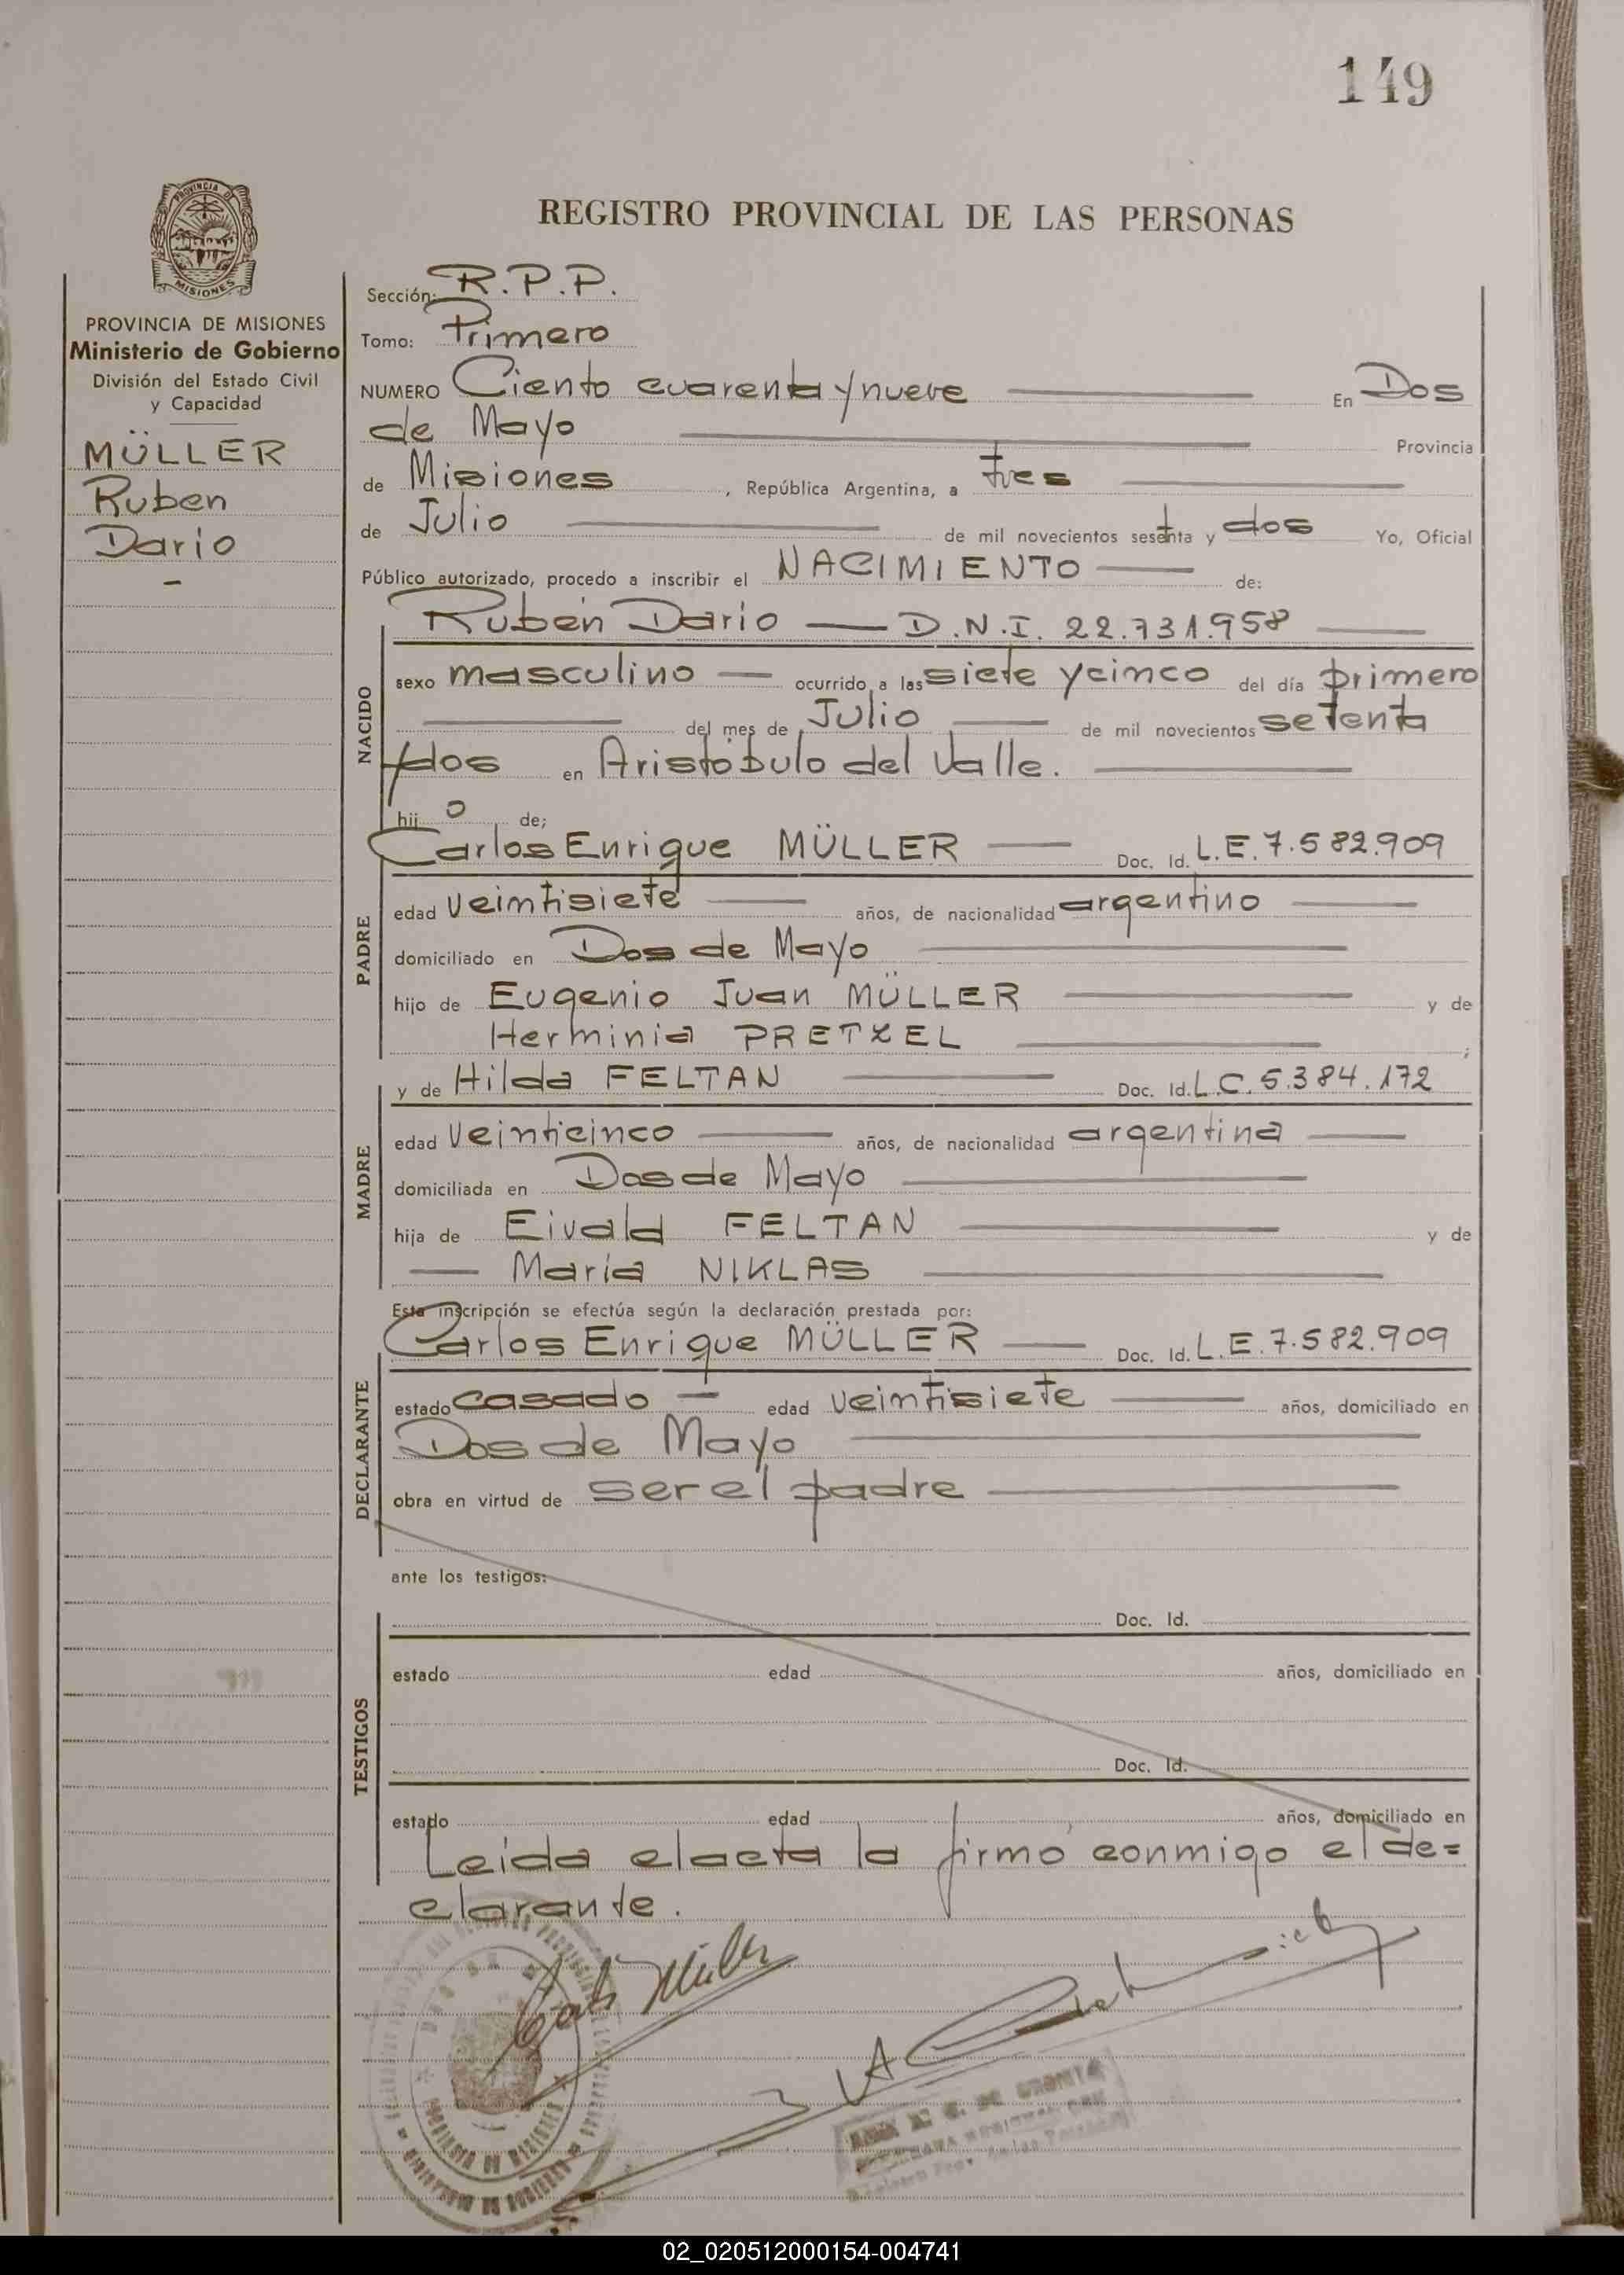 149
PROVINCIA DE
MISIONES
REGISTRO PROVINCIAL DE LAS PERSONAS
PROVINCIA DE MISIONES
Ministerio de Gobierno
División del Estado Civil
y Capacidad
MÜLLER
Ruben
Dario
-
Sección: R.P.P.
Tomo: Primero
NUMERO Ciento cuarenta y nueve En Dos
de Mayo Provincia
de Misiones, República Argentina, a tres
de Julio de mil novecientos sesenta y dos Yo, Oficial
Público autorizado, procedo a inscribir el NACIMIENTO de:
Rubén Dario — D.N.I. 22.731.958
NACIDO
sexo masculino — ocurrido a las siete y cinco del día primero
del mes de Julio de mil novecientos setenta
y dos en Aristóbulo del Valle.
hij o de;
Carlos Enrique MÜLLER — Doc. Id. L.E. 7.582.909
PADRE
edad veintisiete años, de nacionalidad argentino
domiciliado en Dos de Mayo
hijo de Eugenio Juan MÜLLER y de
Herminia PRETZEL ;
y de Hilda FELTAN Doc. Id. L.C. 5.384.172
MADRE
edad veinticinco años, de nacionalidad argentina
domiciliada en Dos de Mayo
hija de Eivald FELTAN y de
— María NIKLAS
Esta inscripción se efectúa según la declaración prestada por:
Carlos Enrique MÜLLER — Doc. Id. L.E. 7.582.909
DECLARANTE
estado casado — edad veintisiete años, domiciliado en
Dos de Mayo
obra en virtud de ser el padre
ante los testigos:
Doc. Id.
TESTIGOS
estado edad años, domiciliado en
Doc. Id.
estado edad años, domiciliado en
Leida el acta la firmó conmigo el de=
clarante.
Carlos Müller
02_020512000154-004741